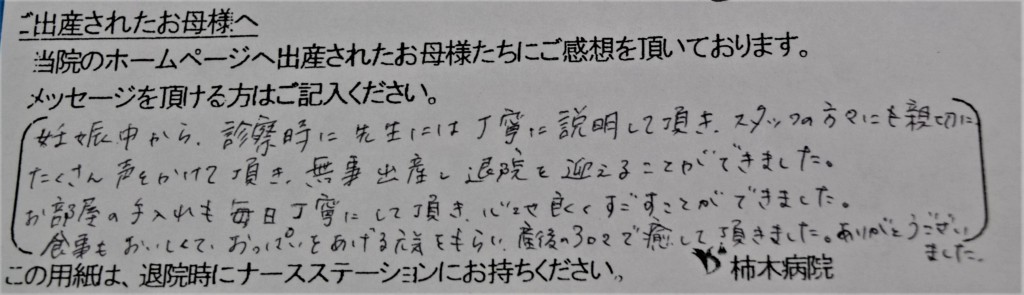 ご出産されたお母様へ
当院のホームページへ出産されたお母様たちにご感想を頂いております。
メッセージを頂ける方はご記入ください。
妊娠中から、診察時に先生には丁寧に説明して頂き、スタッフの方々にも親切に
たくさん声をかけて頂き、無事出産し退院を迎えることができました。
お部屋の手入れも毎日丁寧にして頂き、心地良くすごすことができました。
食事もおいしくて、おっぱいをあげる元気をもらい、産後の30々で癒して頂きました。ありがとうござい
ました。
この用紙は、退院時にナースステーションにお持ちください。
柿木病院